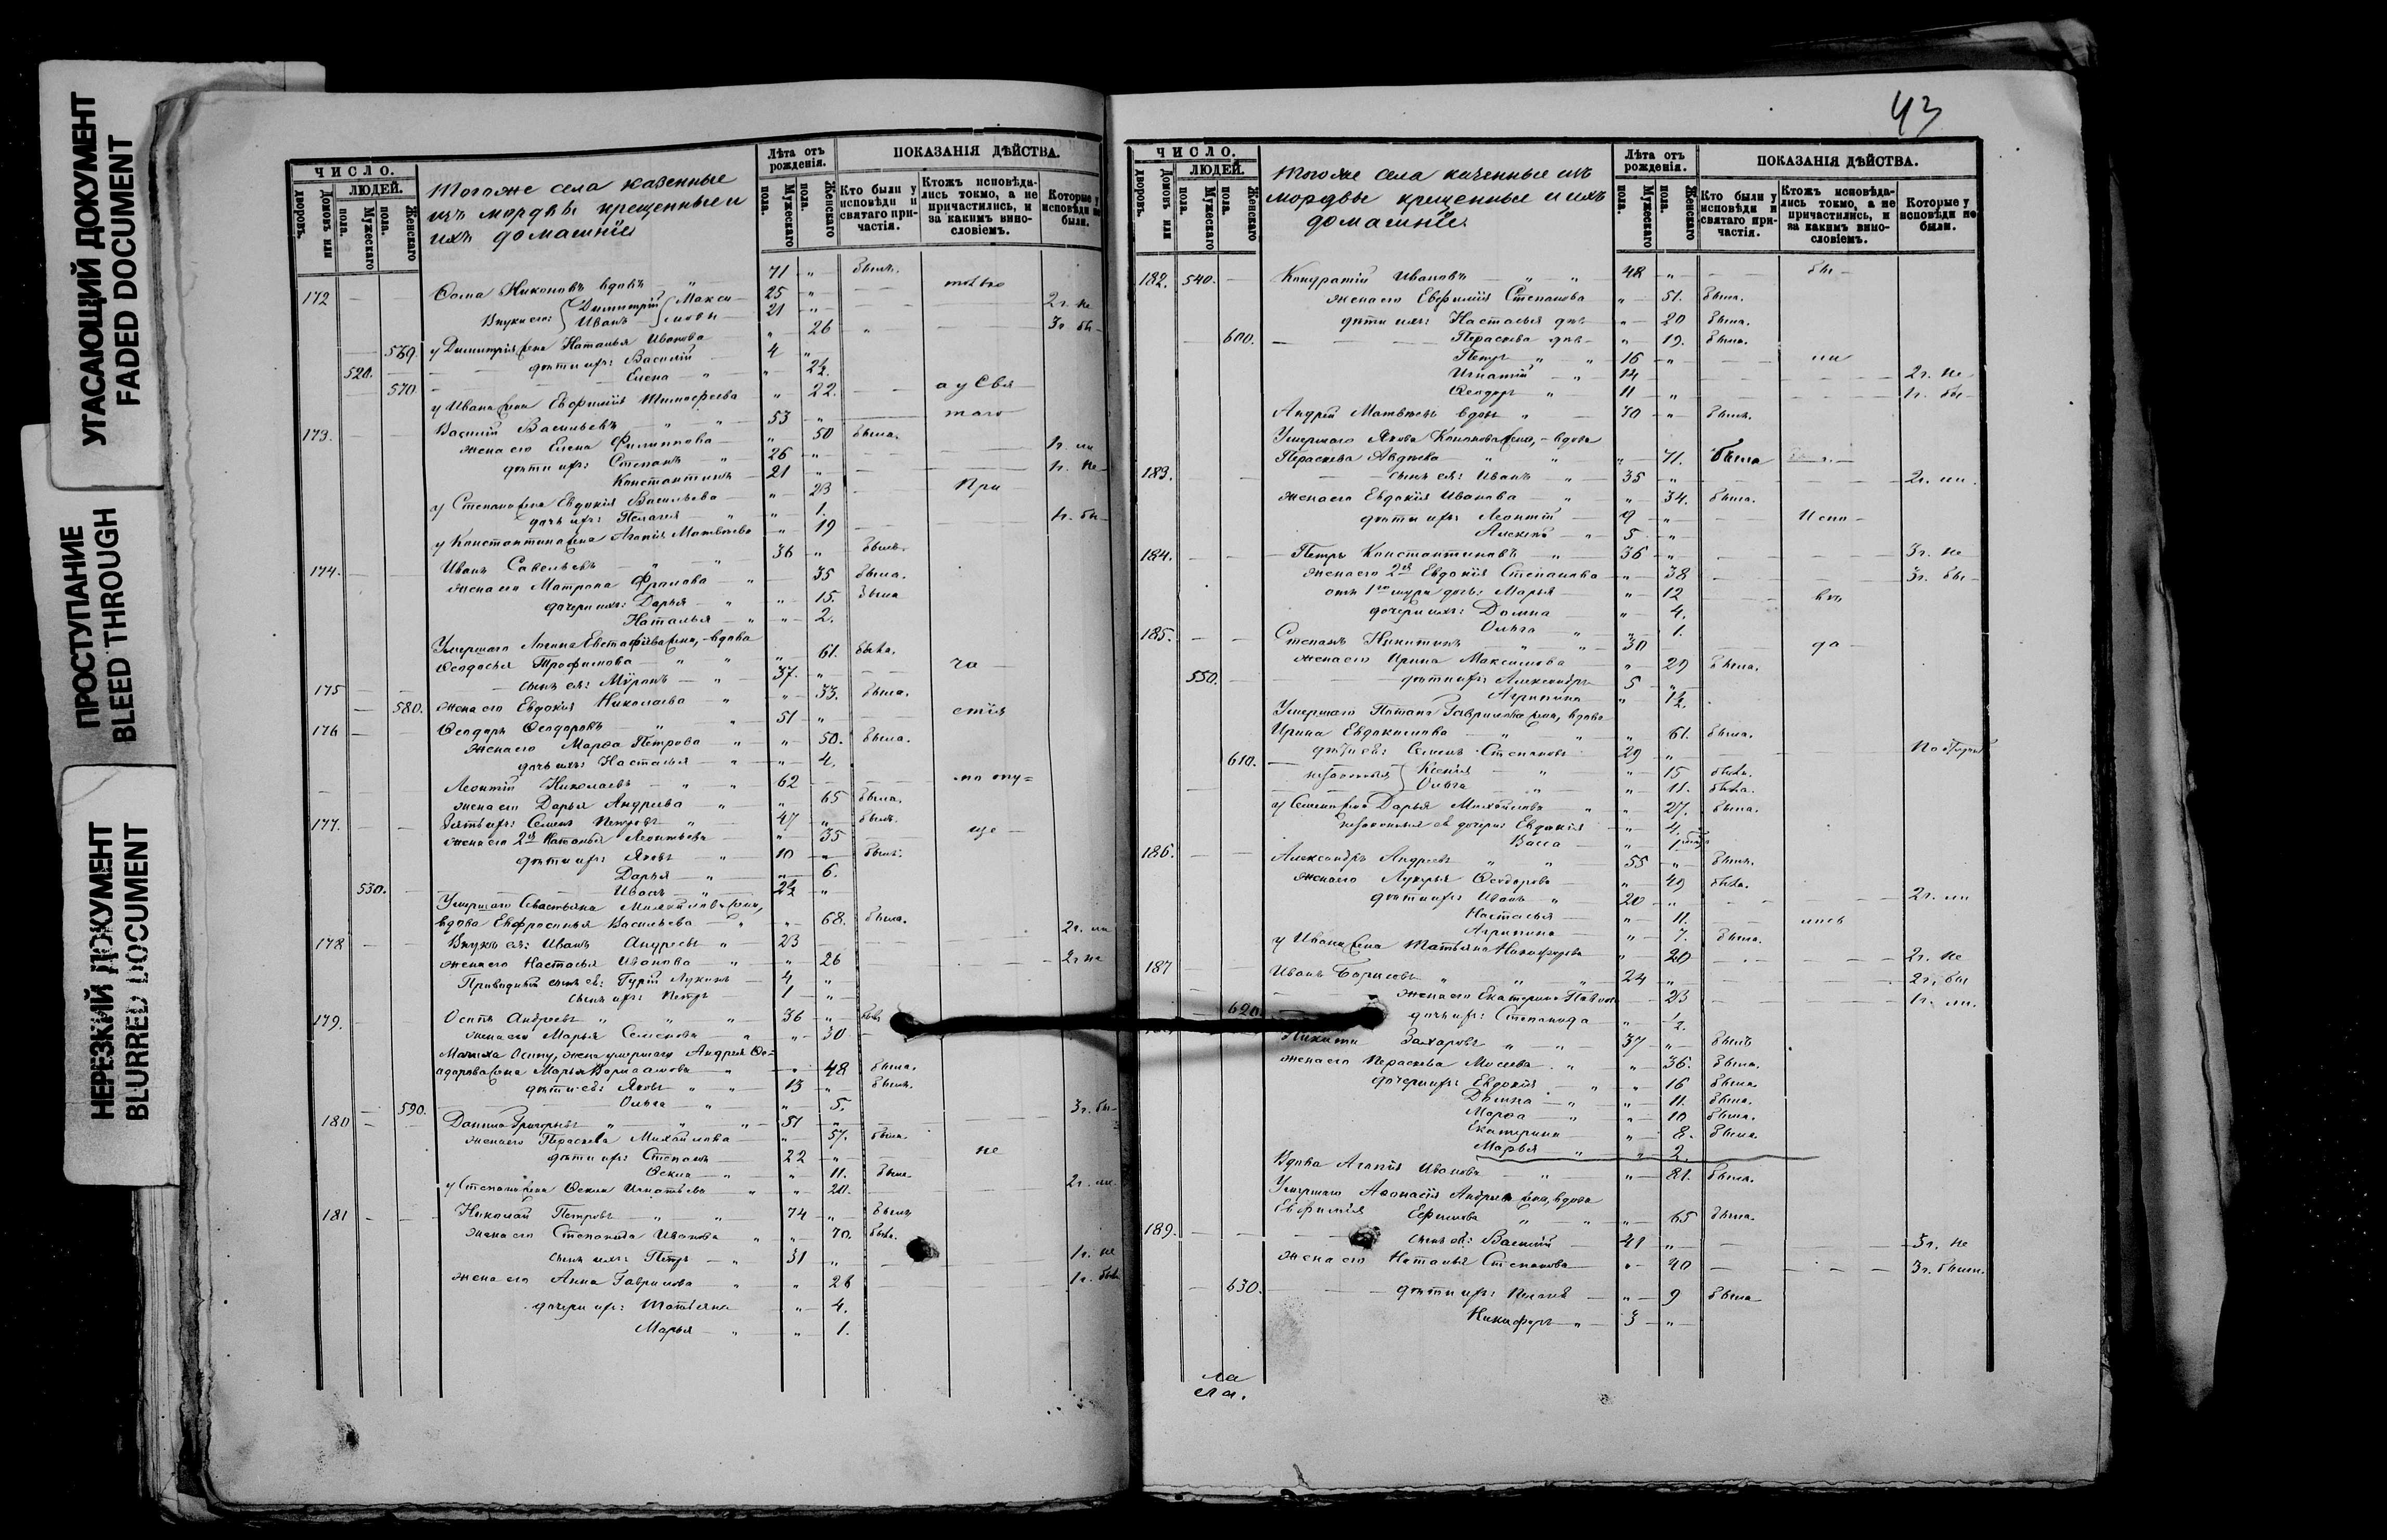 УГАСАЮЩИЙ ДОКУМЕНТ
FADED DOCUMENT
ПРОСТУПАНИЕ
BLEED THROUGH
НЕРЕЗКИЙ ДОКУМЕНТ
BLURRED DOCUMENT
ЧИСЛО.
ЛЮДЕЙ.
Домовъ или дворовъ.
Мужескаго пола.
Женскаго пола.
Тогоже села казенные
изъ мордвы крещенные и
ихъ домашніе
Лѣта отъ рожденія.
Мужескаго пола.
Женскаго пола.
ПОКАЗАНІЯ ДѢЙСТВА.
Кто были у исповѣди и святаго причастія.
Ктожъ исповѣдались токмо, а не причастились, и за какимъ винословіемъ.
Которые у исповѣди не были.
172 Ѳома Никоновъ вдовъ 71 былъ.
Внуки его: Димитрій Макси- 25 токмо
Иванъ мовы 21 2 г. не
569. у Димитрія жена Наталья Иванова 26 3 г. бы-
520. дѣти ихъ: Василій 4
570. Елена
у Ивана жена Евфимія Тимофеева 22. а у Свя
173. Василій Васильевъ 53 таго
жена его Елена Филиппова 50 была.
дѣти ихъ: Степанъ 26 1 г. ли
Константинъ 21 1 г. не
у Степана жена Евдокія Васильева 23 При
дочь ихъ: Пелагея 1.
у Константина жена Агапія Матвѣева 19 1 г. бы-
174. Иванъ Савельевъ 36 былъ.
жена его Матрона Фролова 35 была.
дочери ихъ: Дарья 15. была
Наталья 2.
Умершаго Логина Евстафіева жена, вдова
Ѳеодосья Трофимова 61. была.
175 сынъ ея: Миронъ 37. ча
580. жена его Евдокія Николаева 33. была.
176 Ѳеодоръ Ѳеодоровъ 51 стія
жена его Марѳа Петрова 50. была.
дочь ихъ: Настасья 4.
Леонтій Николаевъ 62 по опу=
жена его Дарья Андреева 65 была.
177. Зять ихъ: Семенъ Петровъ 47 былъ.
жена его 2я Наталья Леонтьева 35 ще
дѣти ихъ: Яковъ 10 былъ.
Дарья 6.
530. Иванъ
Умершаго Севастьяна Михайлова жена,
вдова Евфросинья Васильева 68. была.
178 Внукъ ея: Иванъ Андреевъ 23 2 г. ли
жена его Настасья Иванова 26 2 г. не
Приводный сынъ ея: Гурій Лукинъ 4
сынъ ихъ: Петръ 1
179. Осипъ Андреевъ 36
жена его Марья Семенова 30
Мачиха Осипу, жена умершаго Андрея Ѳе=
одорова жена Марья Варлаамова 48 была.
дѣти ея: Яковъ 13 былъ.
590. Ольга 5.
180 Данило Григорьевъ 51 3 г. бы-
жена его Параскева Михайлова 57. была.
дѣти ихъ: Степанъ 22 не
Ѳекла 11. была.
у Степана жена Ѳекла Игнатьева 20. 2 г. ли
181 Николай Петровъ 74 былъ
жена его Степанида Иванова 70. была.
сынъ ихъ: Петръ 31 1 г. не
жена его Анна Гаврилова 26 1 г. бы
дочери ихъ: Татьяна 4.
Марья 1.
43
ЧИСЛО.
ЛЮДЕЙ.
Домовъ или дворовъ.
Мужескаго пола.
Женскаго пола.
Тогоже села казенные изъ
мордвы крещенные и ихъ
домашніе.
Лѣта отъ рожденія.
Мужескаго пола.
Женскаго пола.
ПОКАЗАНІЯ ДѢЙСТВА.
Кто были у исповѣди и святаго причастія.
Ктожъ исповѣдались токмо, а не причастились, и за какимъ винословіемъ.
Которые у исповѣди не были.
182. 540. Кондратій Ивановъ 48 бы
жена его Евфимія Степанова 51. была.
дѣти ихъ: Настасья дѣв. 20 была.
600. Параскева дѣв. 19. была.
Петръ 16 ли
Игнатій 14 2 г. не
Ѳеодоръ 11 1 г. бы-
Андрей Матвѣевъ вдовъ 70 былъ.
Умершаго Якова Кононова жена, вдова
Параскева Авдѣева 71. была
183. сынъ ея: Иванъ 35 2 г. ли
жена его Евдокія Иванова 34. была.
дѣти ихъ: Леонтій 9 Испо
Алексѣй 5
184. Петръ Константиновъ 36 3 г. не
жена его 2я Евдокія Степанова 38 3 г. бы-
дочь: Марья 12 вѣ
дочери ихъ: Домна 4.
Ольга 1.
185. Степанъ Никитинъ 30 да
жена его Ирина Максимова 29 была.
550. дѣти ихъ: Александръ 5
Агрипина
Умершаго Потапа Гаврилова жена, вдова
Ирина Евдокимова 61. была.
610. дѣти ея: Семенъ Степановъ 29
незаконныя Ксенія 15 была.
Ольга 11. была.
у Семена жена Дарья Михайлова 27. была.
незаконныя ея дочери: Евдокія 4.
Васса
186. Александръ Андреевъ 55 былъ.
жена его Лукерья Ѳеодорова 49 была.
дѣти ихъ: Иванъ 20 2 г. ли
Настасья 11. лись
Агрипина 7. была.
у Ивана жена Татьяна Никифорова 20 2 г. не
187 Иванъ Борисовъ 24 2 г. бы
жена его Екатерина 23 1 г. ли.
620. дочь ихъ: Степанида
Никита Захаровъ 37 былъ
жена его Параскева Мосеева 36. была.
дочери ихъ: Евдокія 16 была.
Домна 11. была.
Марѳа 10 была.
Екатерина 8. была.
Марья 2.
Вдова Агапія Иванова 81. была.
Умершаго Аѳонасія Андреева жена, вдова
Евфимія Ефимова 65 была.
189. сынъ ея: Василій 41 3 г. не
жена его Наталья Степанова 40 3 г. были.
630. дѣти ихъ: Пелагея 9 была
Никифоръ 3